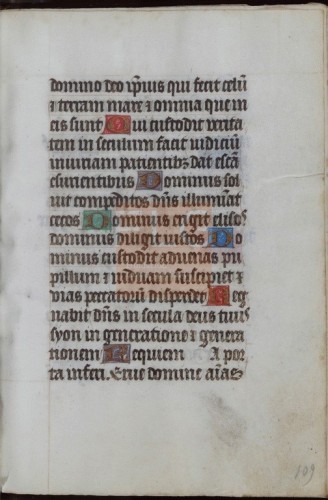 domino deo ipsius qui fecit celū
⁊ terram mare ⁊ omnia que in
eis sunt Qui custodit verita
tem in seculum facit iudiciū
iniuriam patientibꝫ dat escā
esurientibus Dominus sol
uit compeditos dn̄s illuminat
cecos Dominus erigit elisos
dominus diligit iustos Do
minus custodit aduenas pu
pillum ⁊ viduam suscipiet ⁊
vias peccatorū disperdet Reg
nabit dn̄s in secula deus tuus
syon in generatione ⁊ genera
tionem Requiem A por
ta inferi. Erue domine aīas
109